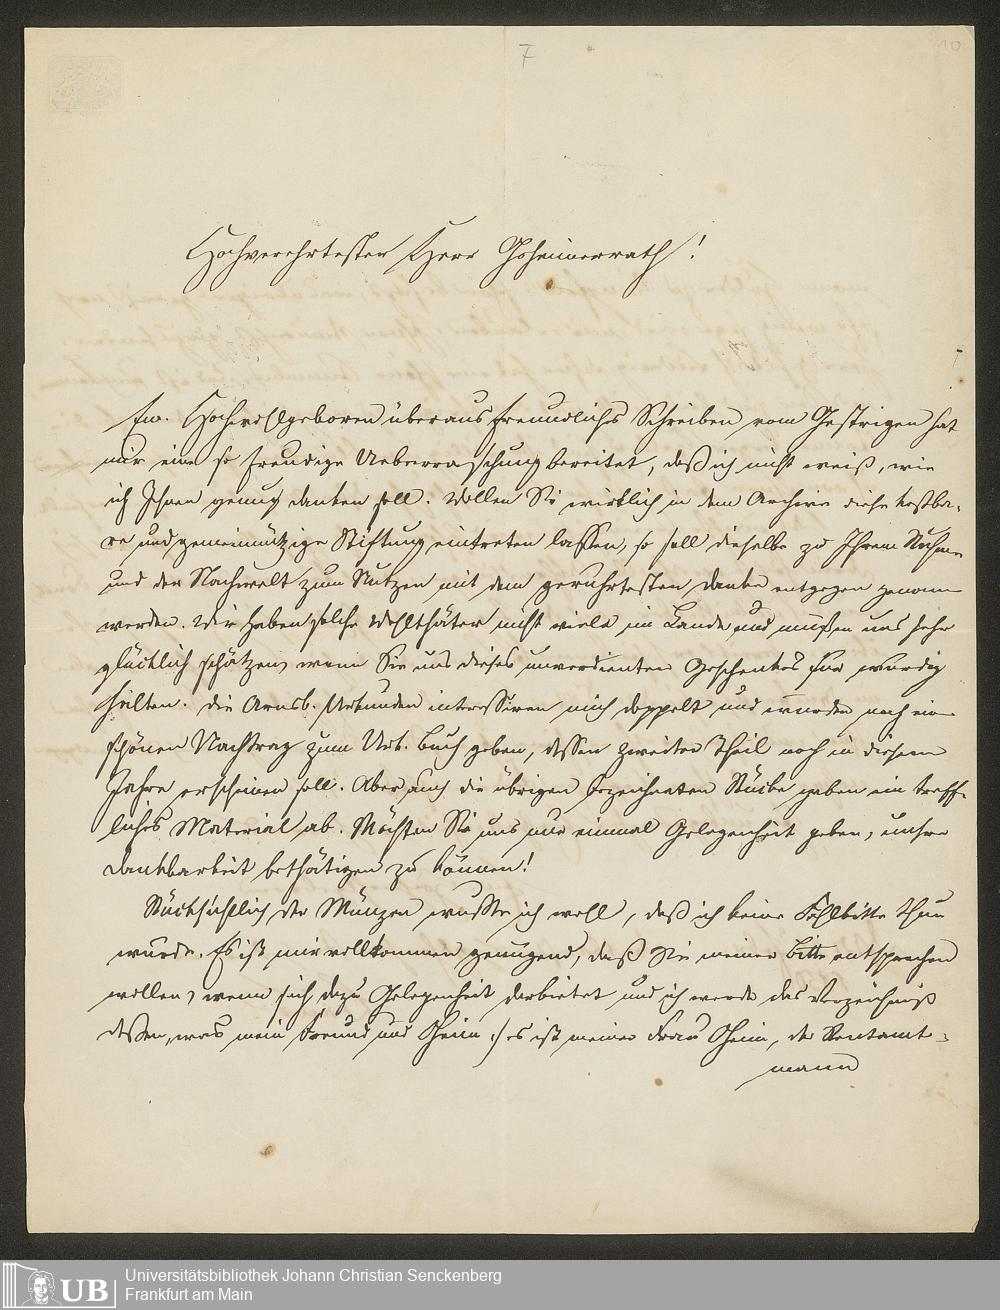 F
10
Hochverehrtester Herr Geheimerrath!
Ew. Hochwohlgeboren überaus freundliches Schreiben vom Gestrigen hat
mir eine so freudige Ueberraschung bereitet, daß ich nicht weiß, wie
ich Ihnen genug danken soll. Wollen Sie wirklich in dem Archive diese kostba-
re und gemeinnützige Stiftung eintreten lassen, so soll dieselbe zu Ihrem Ruhme
und der Nachwelt zum Nutzen mit dem gerührtesten Danke entgegen genommen
werden. Wir haben solche Wohlthäter nicht viele im Lande und müssen uns sehr
glücklich schätzen, wenn Sie uns dieses unverdienten Geschenkes für würdig
halten. Die Arnsb. Urkunden interessiren mich doppelt und würden noch einen
schönen Nachtrag zum Urk. Buch geben, dessen zweiter Theil noch in diesem
Jahre erscheinen soll. Aber auch die übrigen bezeichneten Stücke geben ein treff-
liches Material ab. Möchten Sie uns nur einmal Gelegenheit geben, unsere
Dankbarkeit bethätigen zu können!
Rücksichtlich der Münzen wußte ich wohl, daß ich keine Fehlbitte thun
würde. Es ist mir vollkommen genügend, daß Sie meiner Bitte entsprechen
wollen, wenn sich dazu Gelegenheit darbietet und ich werde das Verzeichniß
dessen, was mein Freund und Oheim :/ es ist meiner Frau Oheim, der Rentamt-
mann
UB
Universitätsbibliothek Johann Christian Senckenberg
Frankfurt am Main